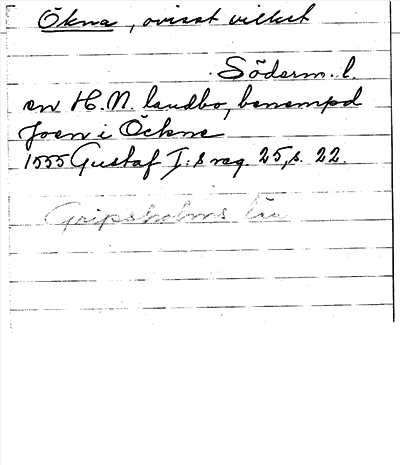 Ökna, ovisst vilket
Söderm. l.
en H. N. landbo, benempd
Joen i Öckne
1555 Gustaf I:s reg. 25, s. 22.
Gripsholms län